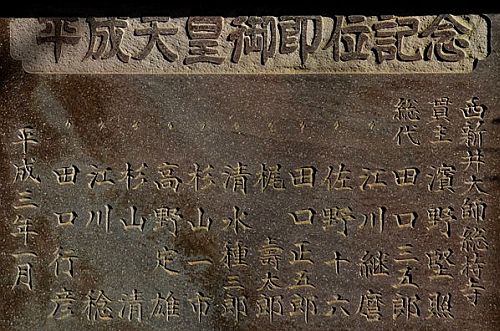 平成天皇御即位記念
西新井大師総持寺
貫主 濱野堅照
総代 田口三五郎
〃 江川継麿
〃 佐野十六
〃 田口正五郎
〃 梶壽太郎
〃 清水種三郎
〃 杉山一市
〃 高野定雄
〃 杉山清
〃 江川稔
〃 田口行彦
平成三年一月